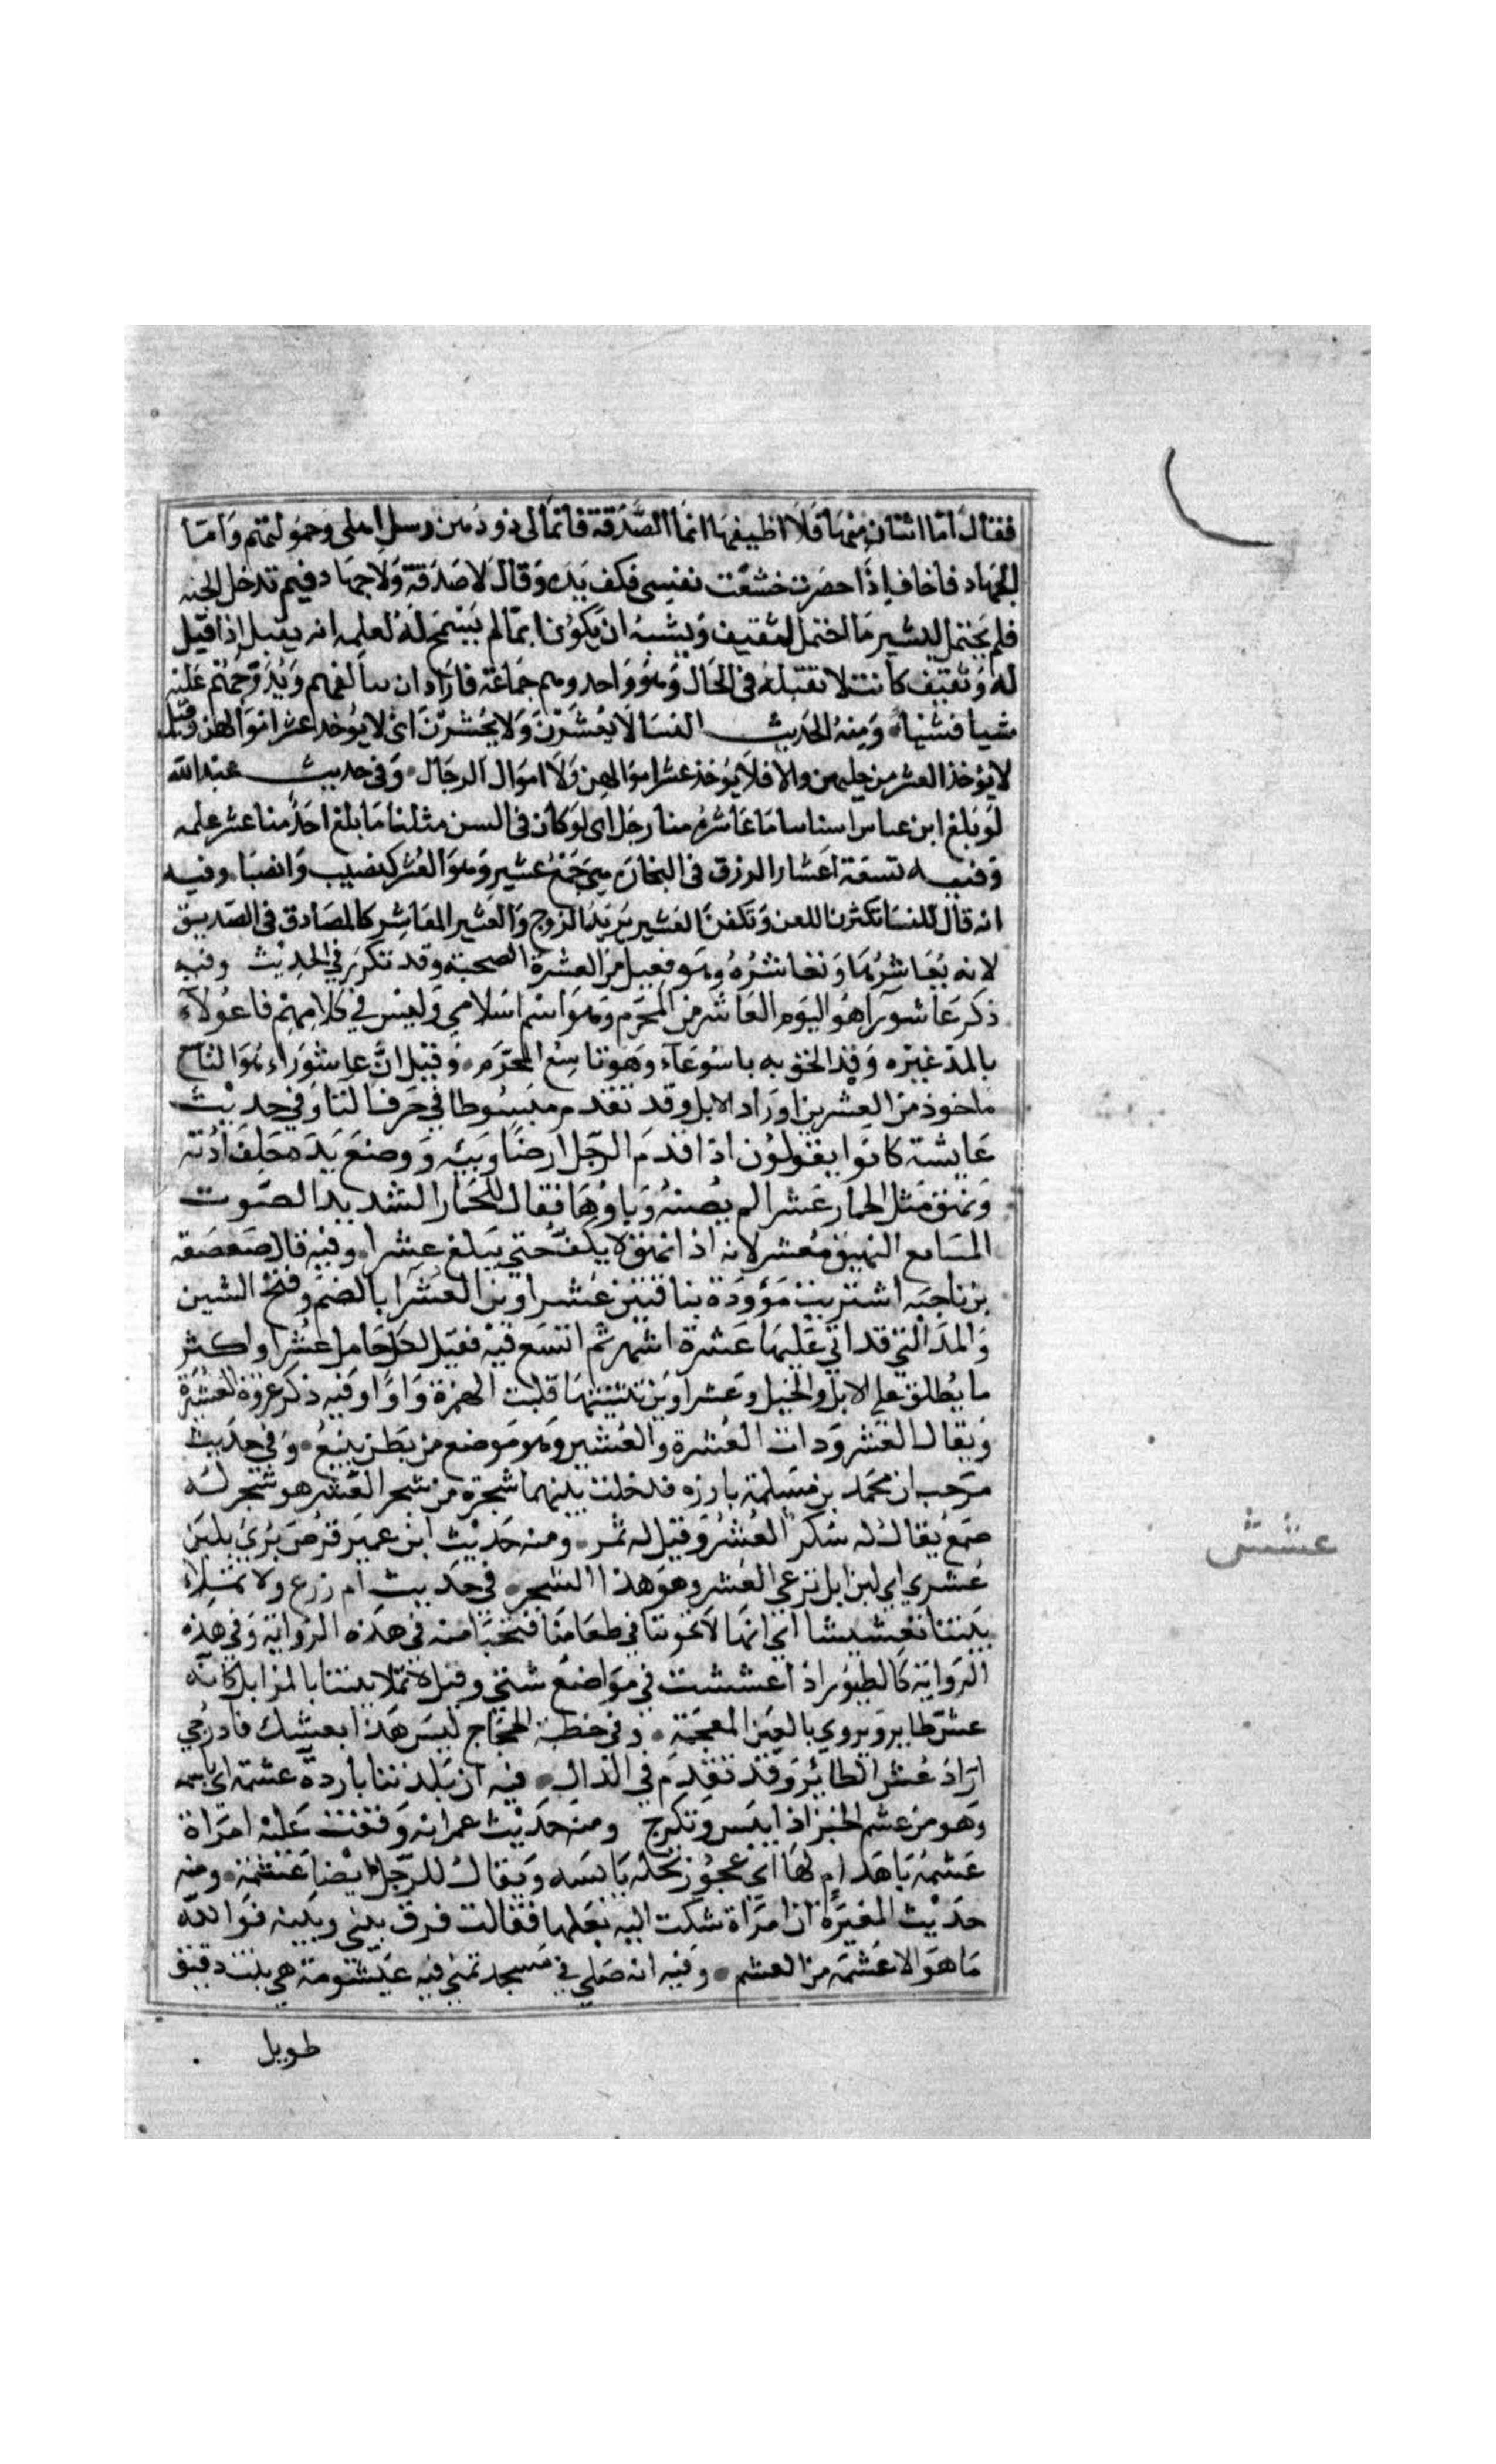 فقال أما اثنان منها فلا اطيفها انما الصدقة فانما لى ذود هن رسل اهلى وحمولتهم وأما
الجهاد فاخاف إذا حضرت خشعت نفسي فكف يده وقال لا صدقة ولا جهاد فبم تدخل الجنه
فلم يحتمل لبشير ما احتمل لثقيف ويشبه ان يكون انما لم يسمح له لعلمه انه يقبل إذا قيل
له وثقيف كانت لا تقبله في الحال وهو واحد وهم جماعة فاراد ان يتألفهم ويدرجهم عليه
شيا فشيا ومنه الحديث النسا لا يعشرن ولا يحشرن اى لا يوخذ عشر اموالهن وقيل
لا يؤخذ العشر من حليهن والا فلا يؤخذ عشر اموالهن ولا اموال الرجال وفى حديث عبد الله
لو بلغ ابن عباس اسناسا ما عاشره منا رجل اى لو كان فى السن مثلنا ما بلغ احد منا عشر علمه
وفيه تسعة اعشار الرزق فى التجارة هى جمع عشير وهو العشر كنصيب وانصبا وفيه
انه قال للنسا تكثرن اللعن وتكفرن العشير يريد الزوج والعشير المعاشر كالمصادق فى الصديق
لانه يعاشرها وتعاشره وهو فعيل من العشرة الصحبة وقد تكرر في الحديث وفيه
ذكر عاشورآ هو اليوم العاشر من المحرم وهو اسم اسلامي وليس في كلامهم فاعولآء
بالمد غيره وقد الحق به تاسوعآء وهو تاسع المحرم وقيل ان عاشوراء هو التاسع
ماخوذ من العشر بن اوراد الابل وقد تقدم مبسوطا في حرف التا وفي حديث
عايشة كانوا يقولون اذا قدم الرجل ارضا وبيه ووضع يده خلف اذنه
ونهق مثل الحمار عشرا لم يصبه وباوها فقال للحمار الشديد الصوت
المتتابع النهيق معشر لانه اذا نهق لا يكف حتي يبلغ عشرا وفيه قال صعصعه
بن ناجيه اشتريت مؤودة بناقتين عشراوين العشرا بالضم وفتح الشين
والمد التي قد اتي عليها عشرة اشهر ثم اتسع فيه فقيل لكل حامل عشرا واكثر
ما يطلق علي الابل والخيل وعشراوين تثنيتها قلبت الهمزة واوا وفيه ذكر غزوة العشيرة
ويقال العشير وذات العشرة والعشير وهو موضع من بطن ينبع وفي حديث
مرحب ان محمد بن مسلمة بارزه فدخلت بينهما شجرة من شجر العشر هو شجر له
صمغ يقال له سكر العشر وقيل له ثمر ومنه حديث ابن عمير قرص بري بلبن
عشري اي لبن ابل ترعي العشر وهو هذا الشجر في حديث ام زرع ولا تملاء
بيتنا تعشيشا اي انها لا تخوننا في طعامنا فتخبا منه في هذه الزوايه وفي هذه
الزواية كالطيور اذا عششت في مواضع شتي وقيل لا تملا بيتنا بالمزابل كانه
عش طاير ويروي بالغين المعجمة وفي خطبة الحجاج ليس هذا بعشك فادرجي
اراد عش الطائر وقد تقدم في الدال فيه ان بلدتنا باردة عشمة اي يابسه
وهو من عشم الخبز اذا يبس وتكرج ومنه حديث عمر انه وقفت عليه امراة
عشمة باهدام لها اي عجوز نحله يابسه ويقال للرجل ايضا عشمة ومنه
حديث المغيرة ان امراة شكت اليه بعلها فقالت فرق بيني وبينه فوالله
ما هو الا عشمه من العشم وفيه انه صلي في مسجد تمني فيه عيشومة هي بنت دقيق
طويل
عشش